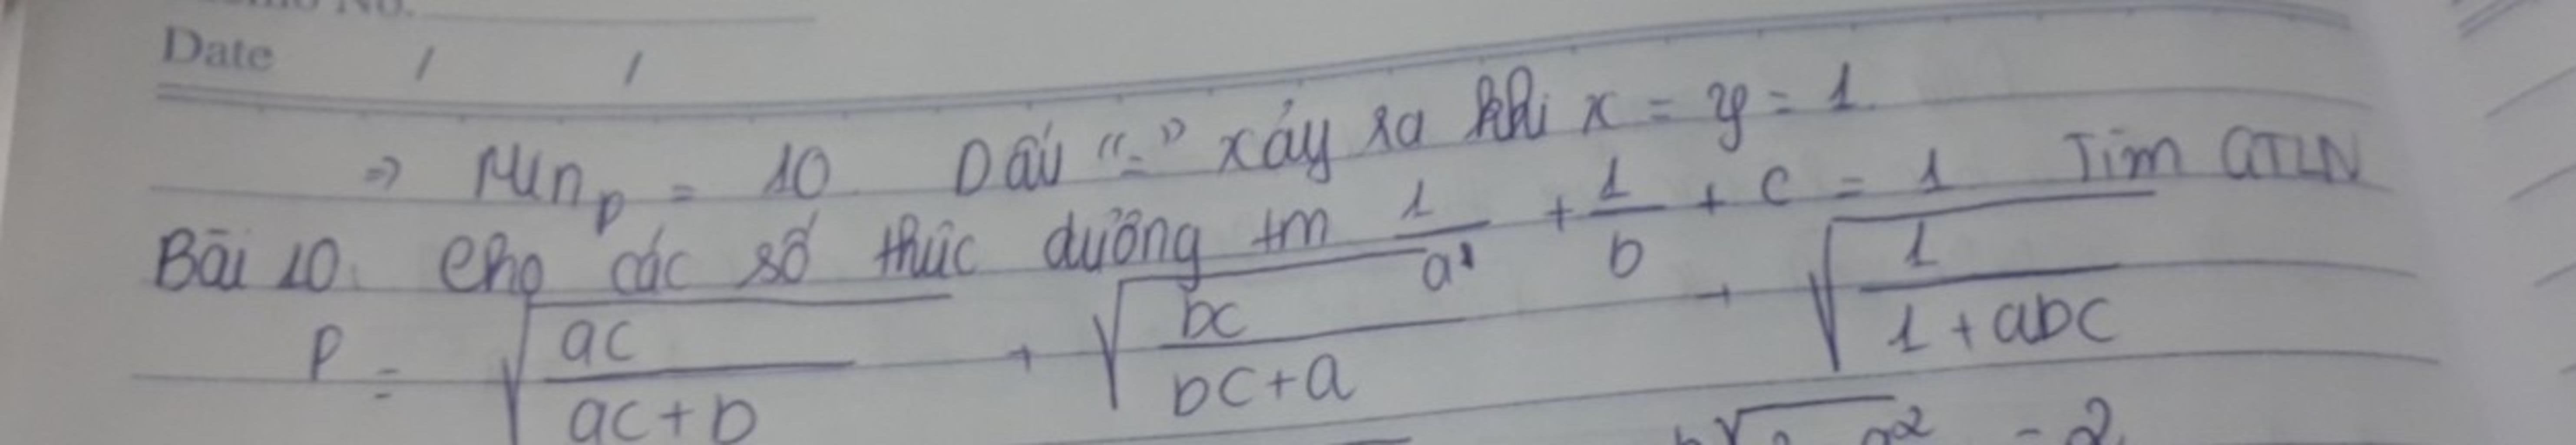 Date / /
⇒ Min_P = 10 Dấu "=" xảy ra khi x = y = 1
Bài 10. Cho các số thực dương tm \frac{1}{a} + \frac{1}{b} + c = 1 Tìm GTLN
P = \sqrt{\frac{ac}{ac+b}} + \sqrt{\frac{bc}{bc+a}} + \sqrt{\frac{1}{1+abc}}